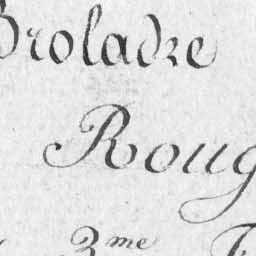 Broladre
Roug
3me